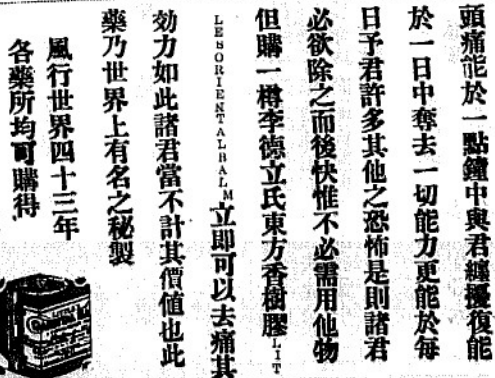 頭痛能於一點鐘中與君纏擾復能
於一日中奪去一切能力更能於每
日予君許多其他之恐怖是則諸君
必欲除之而後快惟不必需用他物
但購一樽李德立氏東方香樹膠LIT
LESORIENTALBALM立即可以去痛其
効力如此諸君當不計其價值也此
藥乃世界上有名之秘製
風行世界四十三年
各藥所均可購得